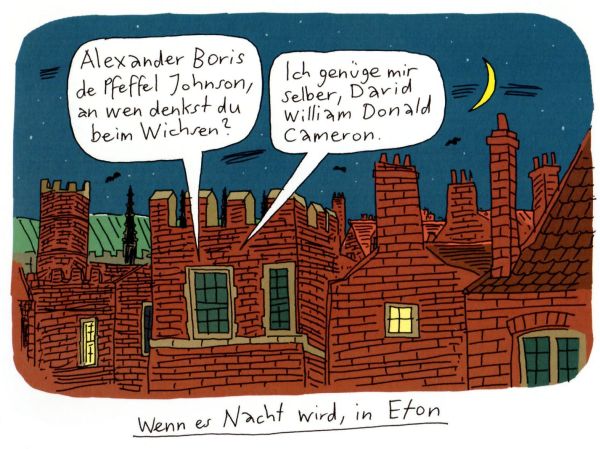 Alexander Boris
de Pfeffel Johnson,
an wen denkst du
beim Wichsen?
Ich genüge mir
selber, David
William Donald
Cameron.
Wenn es Nacht wird, in Eton